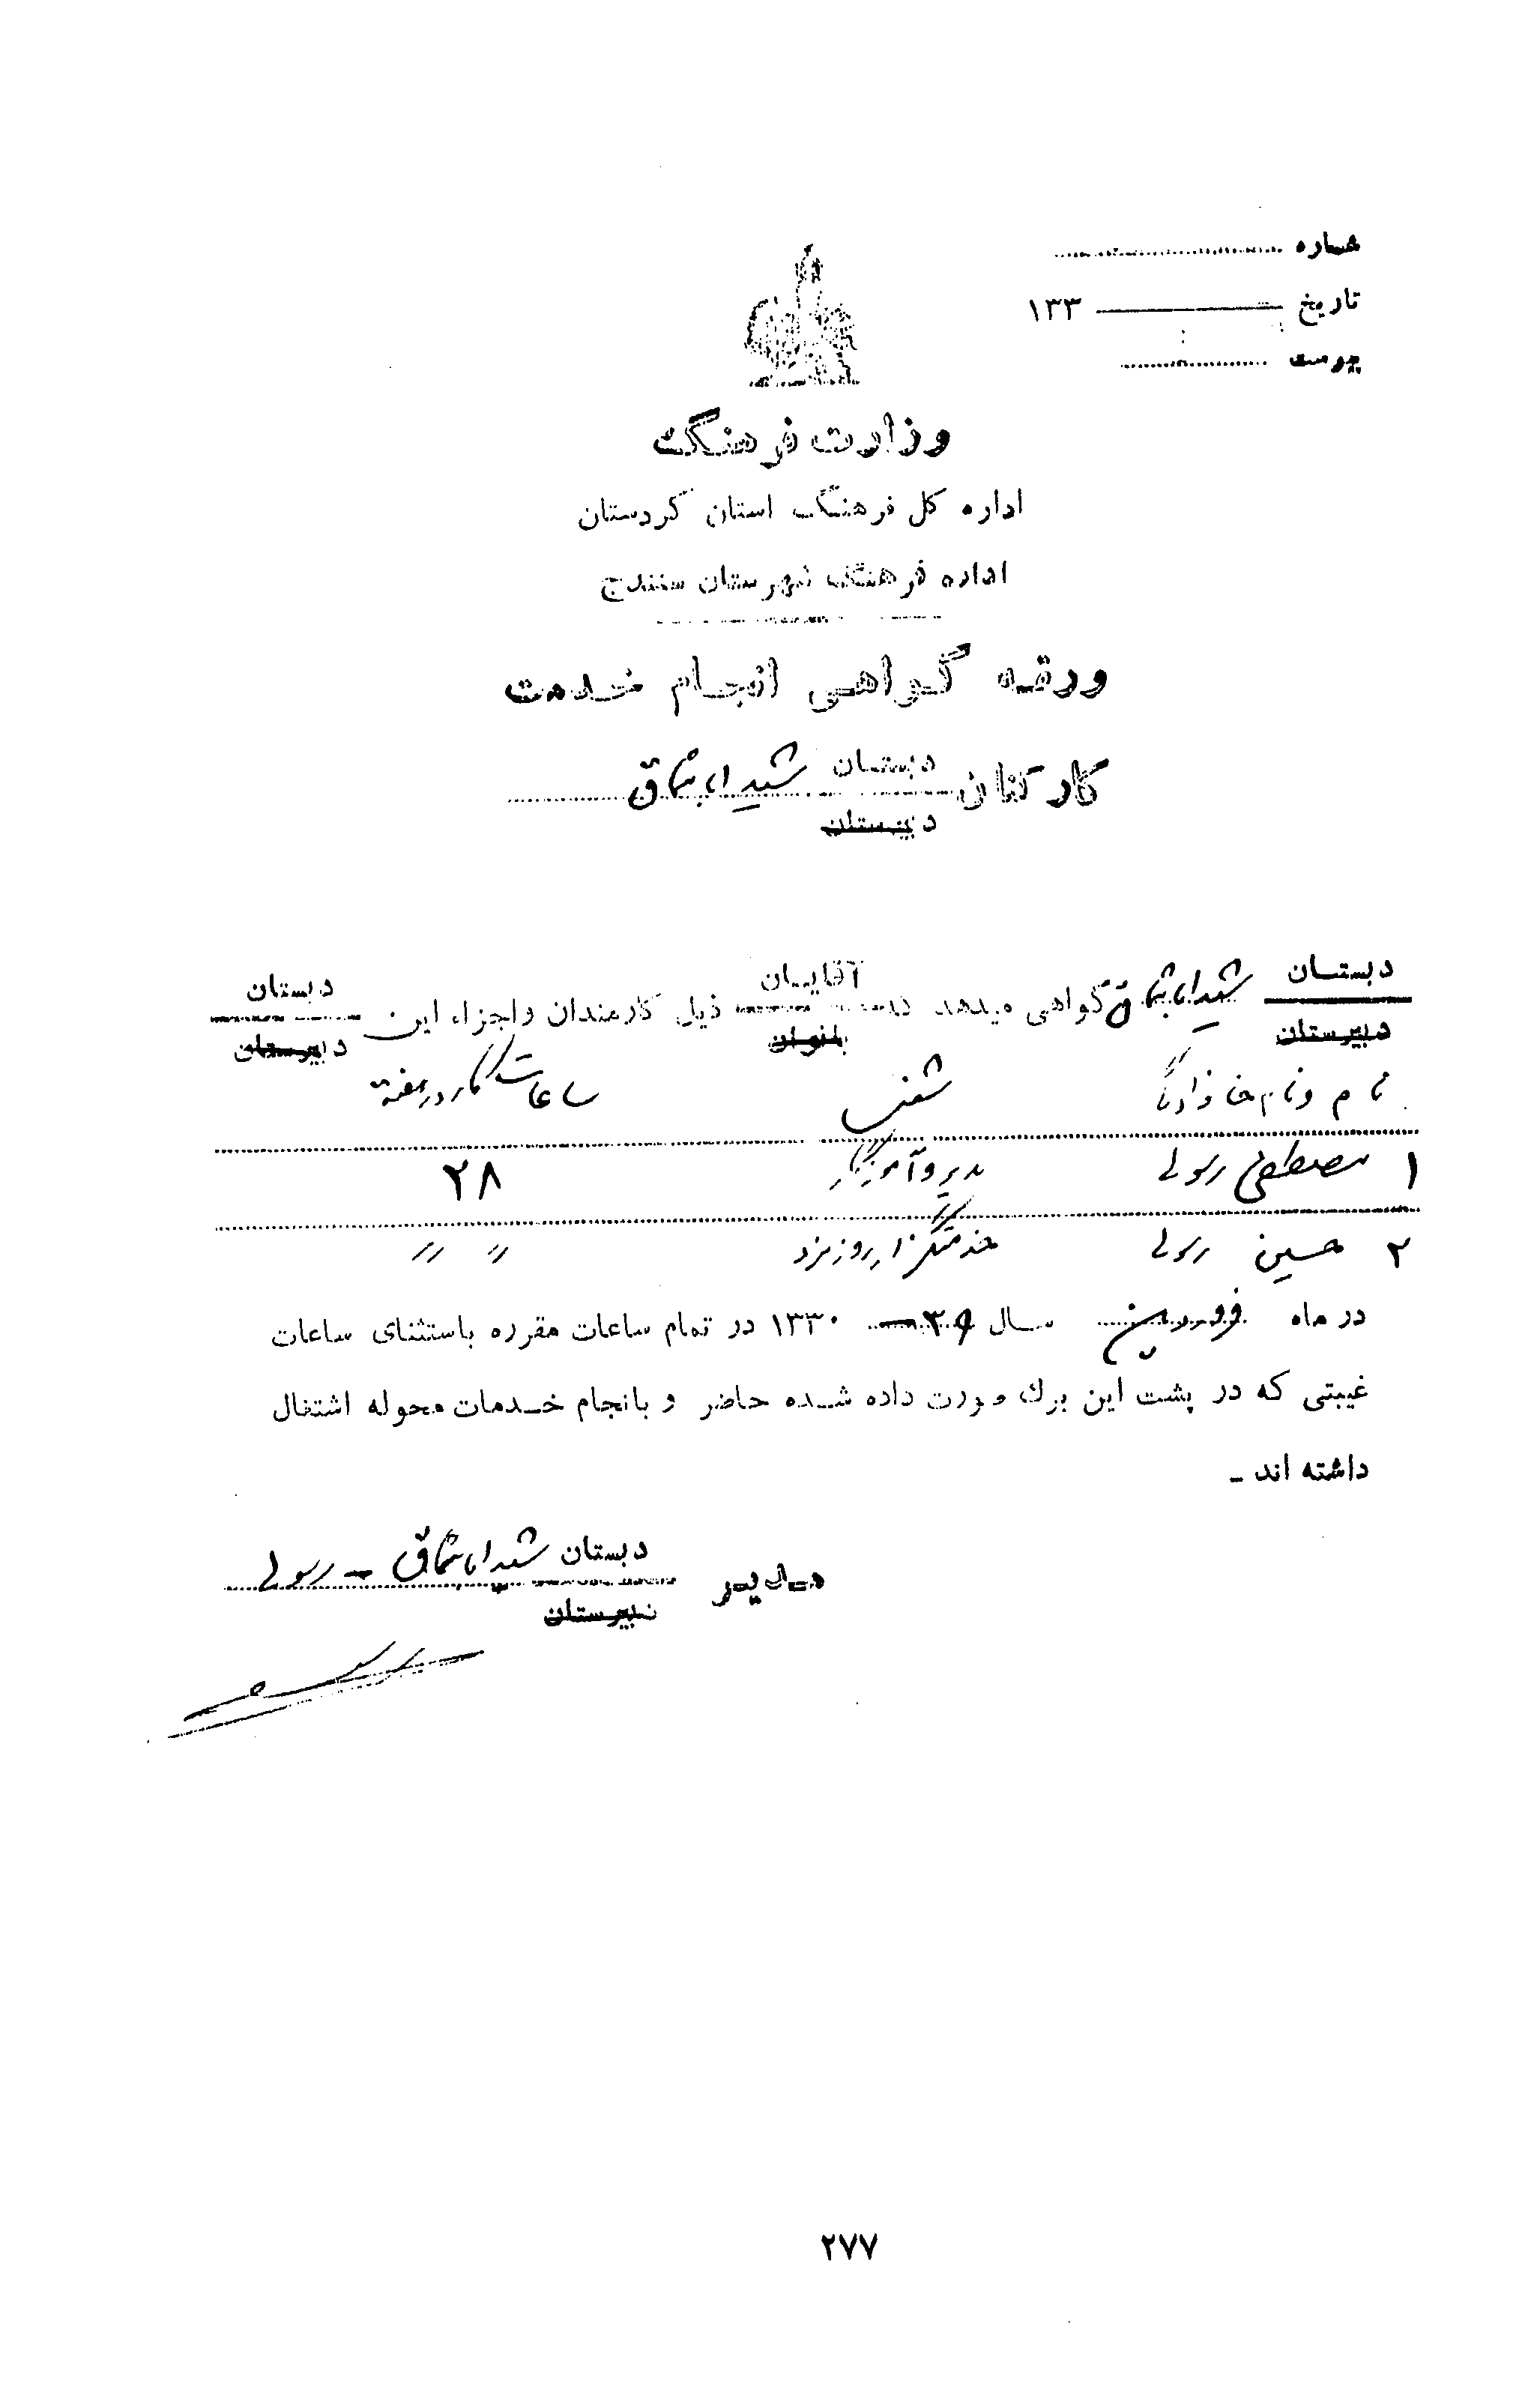 شماره
تاریخ ۱۳۳
پیوست
وزارت فرهنگ
اداره کل فرهنگ استان کردستان
اداره فرهنگ شهرستان سنندج
ورقه گواهی انجام خدمت
کارکنان دبستان
دبیرستان
دبستان گواهی میدهد که آقایان ذیل کارمندان و اجزاء این دبستان
دبیرستان بانوان دبیرستان
نام و نام خانوادگی شغل ساعات کار در هفته
۱ مصطفی رسولی مدیر و آموزگار ۲۸
۲ حسین رسولی خدمتگزار روزمزد " "
در ماه فروردین سال ۳۹ ۱۳۳۰ در تمام ساعات مقرره باستثنای ساعات
غیبتی که در پشت این برك صورت داده شده حاضر و بانجام خدمات محوله اشتغال
داشته اند -
مدیر دبستان - رسولی
دبیرستان
۲۷۷